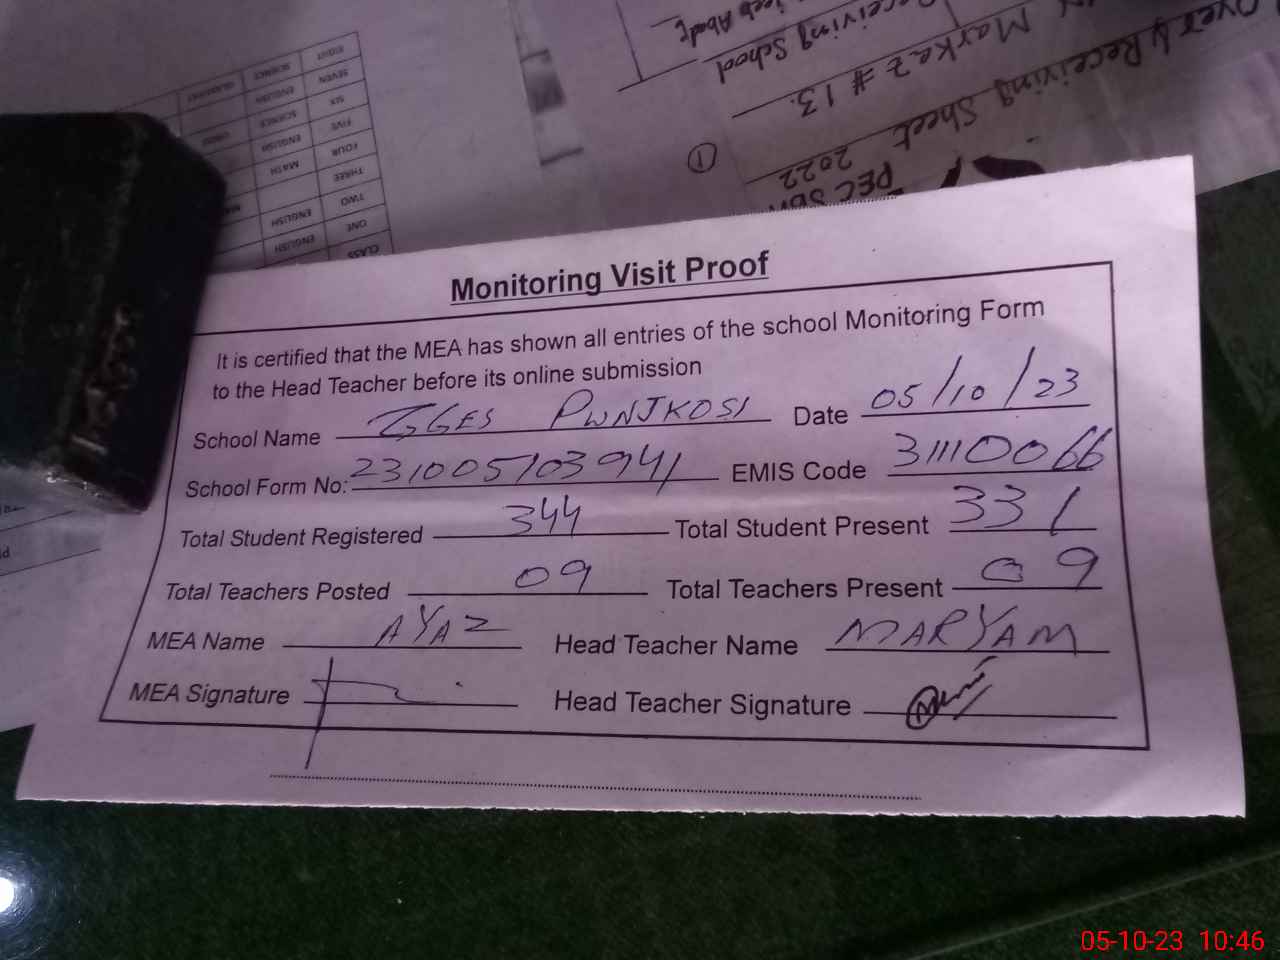 EIGHT SCIENCE
SEVEN ENGLISH
SIX SCIENCE
FIVE ENGLISH
FOUR MATH
THREE
TWO ENGLISH
ONE ENGLISH
CLASS
Receiving School
Markaz # 13.
Over & Receiving Sheet
2022
PEC
1
Monitoring Visit Proof
It is certified that the MEA has shown all entries of the school Monitoring Form
to the Head Teacher before its online submission
School Name GGES PWNJKOSI Date 05/10/23
School Form No: 231005103941 EMIS Code 31110066
Total Student Registered 344 Total Student Present 331
Total Teachers Posted 09 Total Teachers Present 09
MEA Name AYAZ Head Teacher Name MARYAM
MEA Signature Head Teacher Signature
05-10-23 10:46